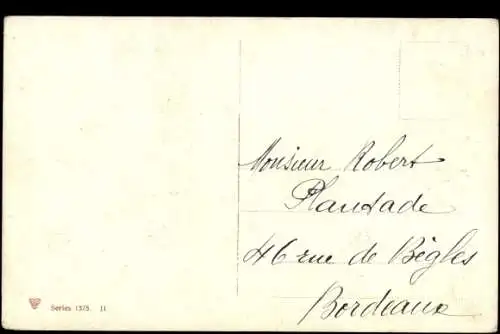 Monsieur Robert
Plantade
46 rue de Bègles
Bordeaux
Series 1375. II